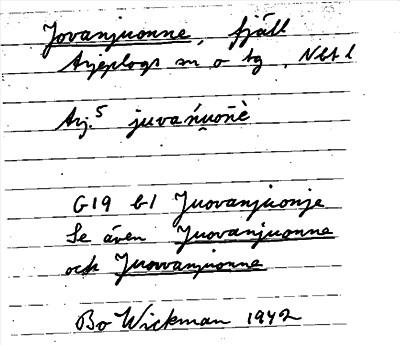 Jovanjuonne, fjäll
Arjeplogs sn o tg, Nbt l
Arj.⁵ juvańu̯ońè
G19 b1 Juovanjuonje
Se även Juovanjuonne
och Juovvanjuonne
Bo Wickman 1942